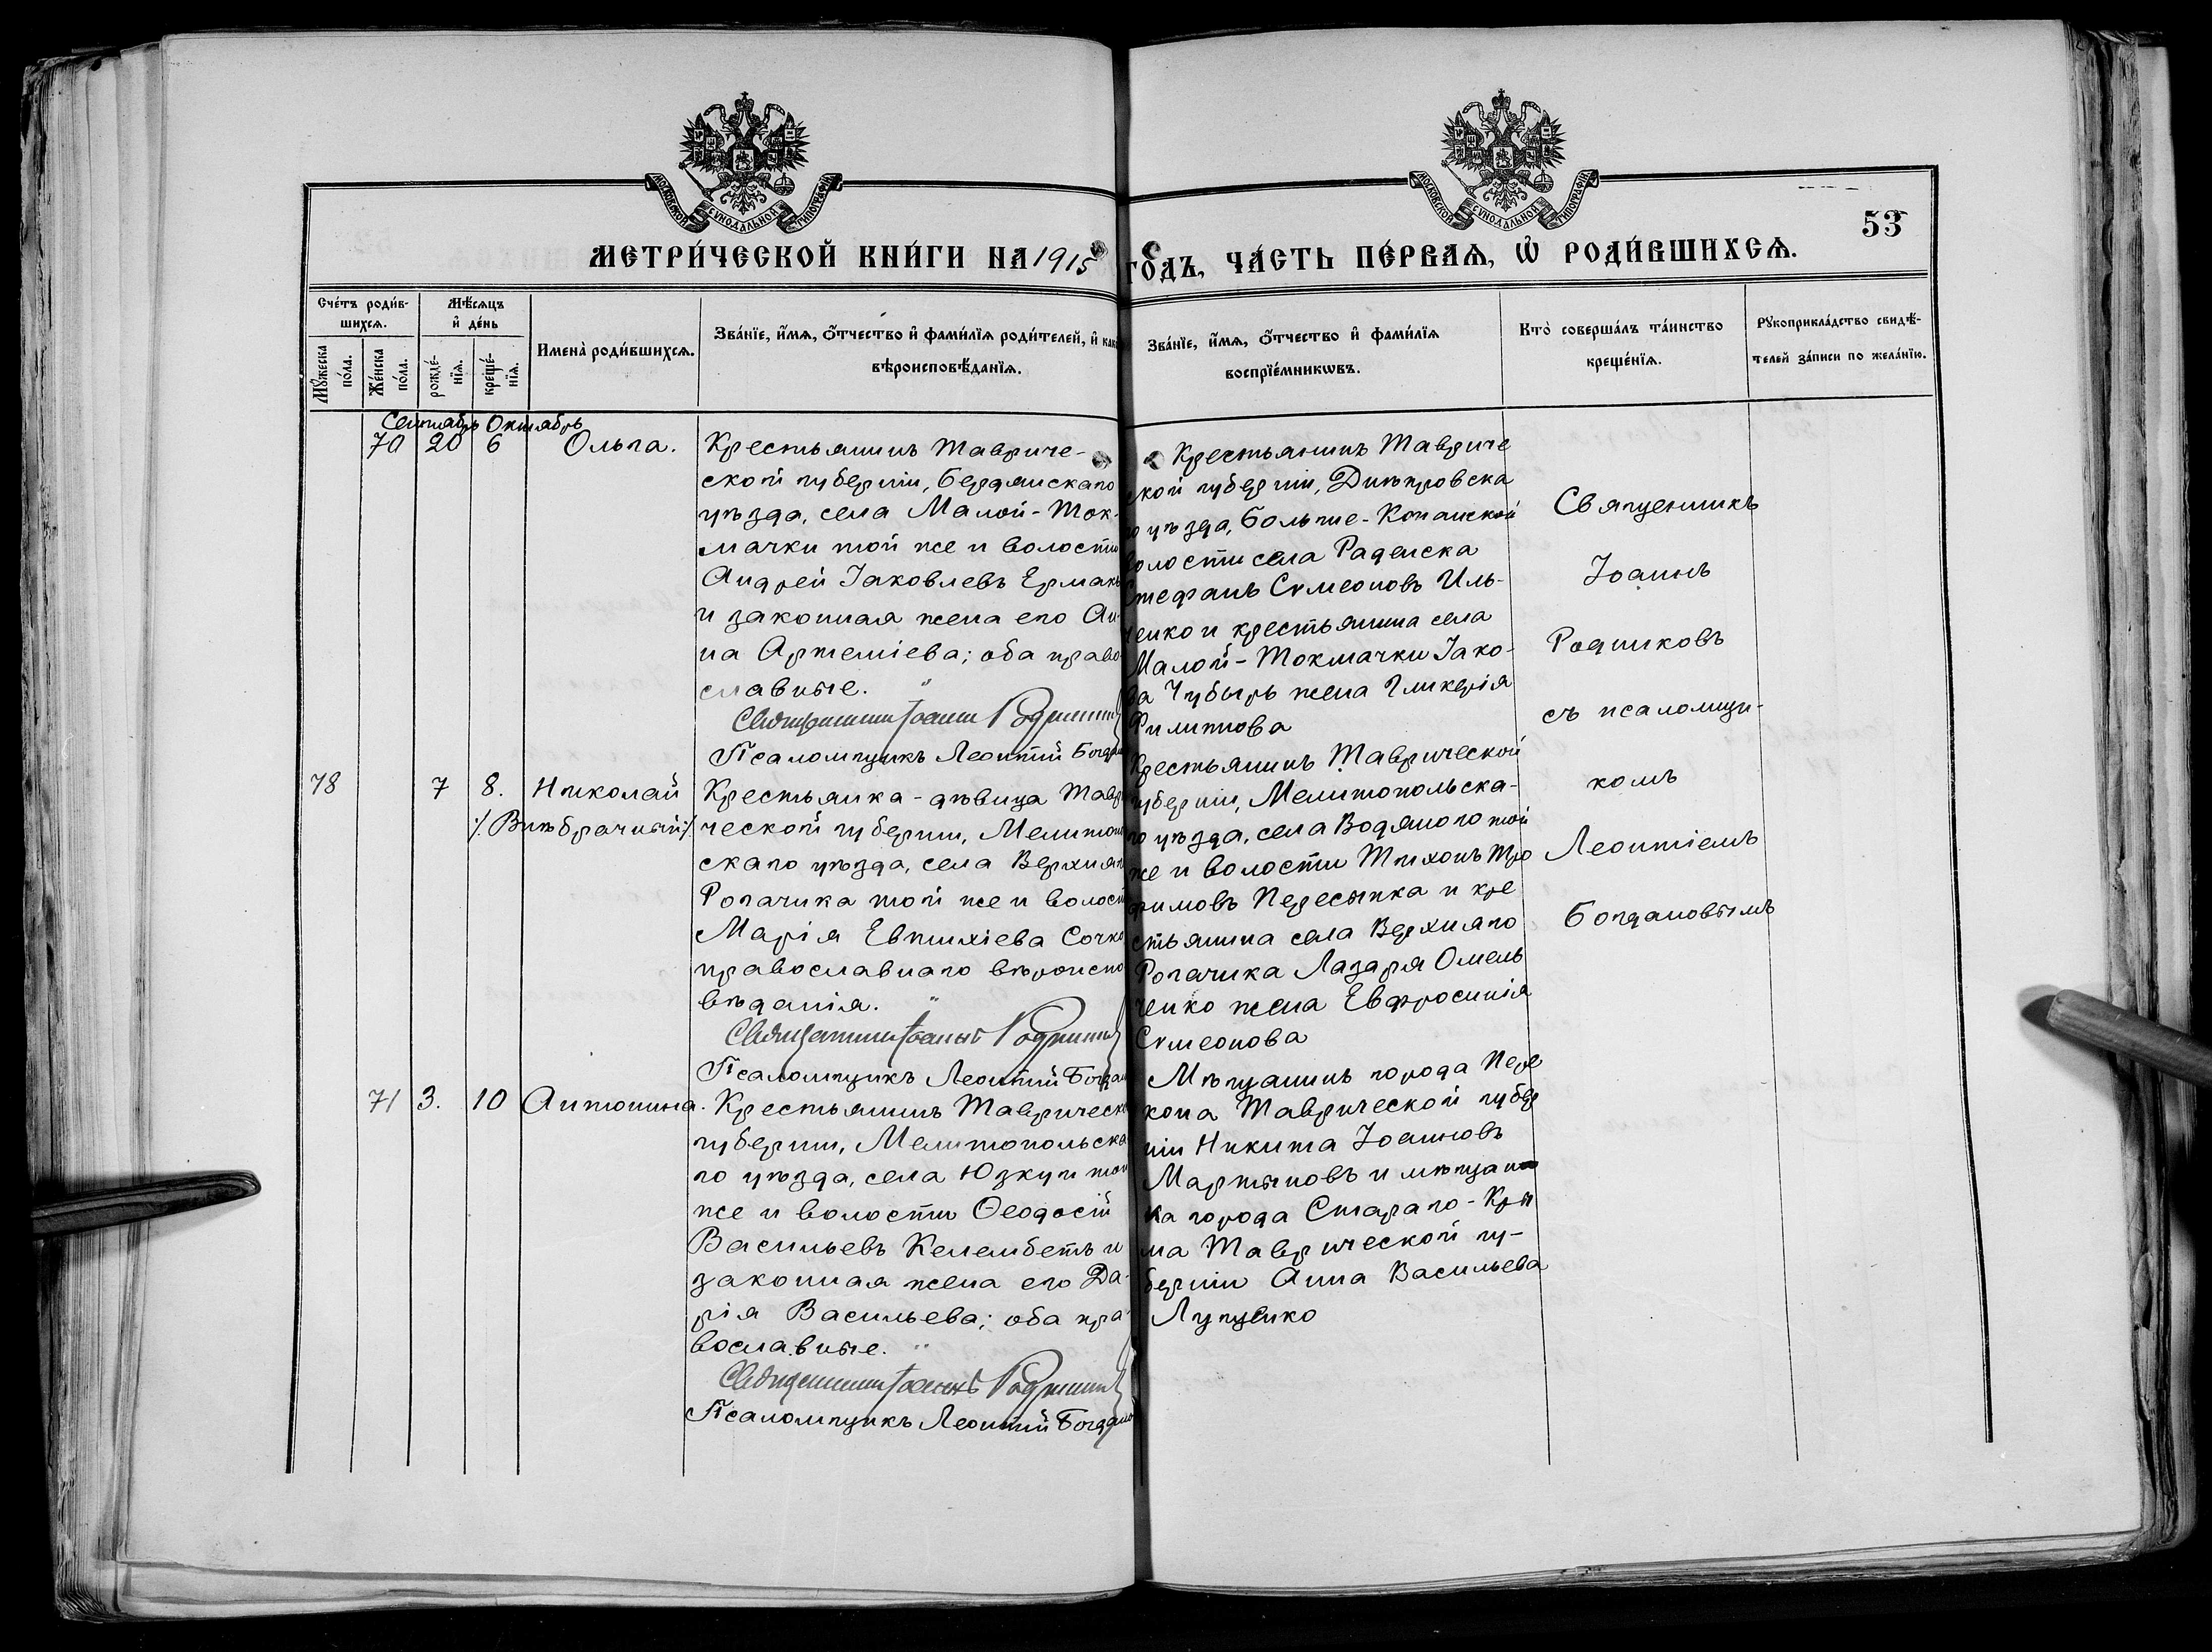 МОСКОВСКОЙ СѴНОДАЛЬНОЙ ТИПОГРАФІИ
МОСКОВСКОЙ СѴНОДАЛЬНОЙ ТИПОГРАФІИ
53
МЕТРИ́ЧЕСКОЙ КНИ́ГИ НА 1915 ГО́ДЪ, ЧА́СТЬ ПЕ́РВАѦ, Ѡ҆ РОДИ́ВШИХСѦ.
Сче́тъ роди́в-
шихсѧ.
Мꙋ́жеска
по́ла.
Же́нска
по́ла.
Мѣ́сѧцъ
и҆ де́нь
рожде́-
нїѧ.
креще́-
нїѧ.
Имена̀ роди́вшихсѧ.
Зва́нїе, и҆́мѧ, ѻ҆́тчество и҆ фами́лїѧ роди́телей, и҆
вѣроисповѣ́данїѧ.
Зва́нїе, и҆́мѧ, ѻ҆́тчество и҆ фами́лїѧ
воспрїе́мникѡвъ.
Кто̀ соверша́лъ та́инство
креще́нїѧ.
Рꙋкоприкла́дство свидѣ́-
телей за́писи по жела́нїю.
Сентябрь Октябрь
70 20 6 Ольга.
Крестьянинъ Тавриче-
ской губерніи, Бердянскаго
уѣзда, села Малой-Ток-
мачки той же и волости
Андрей Іаковлевъ Ермакъ
и законная жена его Ан-
на Артеміева; оба право-
славные. "
Священникъ Іоаннъ Родниковъ
Псаломщикъ Леонтій Богдан
Крестьянинъ Тавриче
ской губерніи, Днѣпровска
го уѣзда, Больше-Копанской
волости села Раденска
Стефанъ Сѵмеоновъ Иль-
ченко и крестьянина села
Малой-Токмачки Іако-
ва Чубырь жена Гликерія
Филиппова
78 7 8. Николай
:/. Внѣбрачный :/.
Крестьянка-дѣвица Таври
ческой губерніи, Мелитопол
скаго уѣзда, села Верхняго
Рогачика той же и волости
Марія Евтихіева Сочко
православнаго вѣроиспо
вѣданія. "
Священникъ Іоаннъ Родниковъ
Псаломщикъ Леонтій Богдан
Крестьянинъ Таврической
губерніи, Мелитопольска-
го уѣзда, села Водяного той
же и волости Тихонъ Тро
фимовъ Пересыпка и кре
стьянина села Верхняго
Рогачика Лазаря Омель
ченко жена Евфросинія
Сѵмеонова
71 3. 10 Антонина.
Крестьянинъ Таврическо
губерніи, Мелитопольска
го уѣзда, села Юзкуи той
же и волости Ѳеодосій
Васильевъ Келембетъ и
законная жена его Да-
рія Васильева; оба пра-
вославные. "
Священникъ Іоаннъ Родниковъ
Псаломщикъ Леонтій Богдано
Мѣщанинъ города Пере
копа Таврической губер
ніи Никита Іоанновъ
Мартыновъ и мѣщан
ка города Стараго-Кры
ма Таврической гу-
берніи Анна Васильева
Лущенко
Священникъ
Іоаннъ
Родниковъ
съ псаломщи-
комъ
Леонтіемъ
Богдановымъ